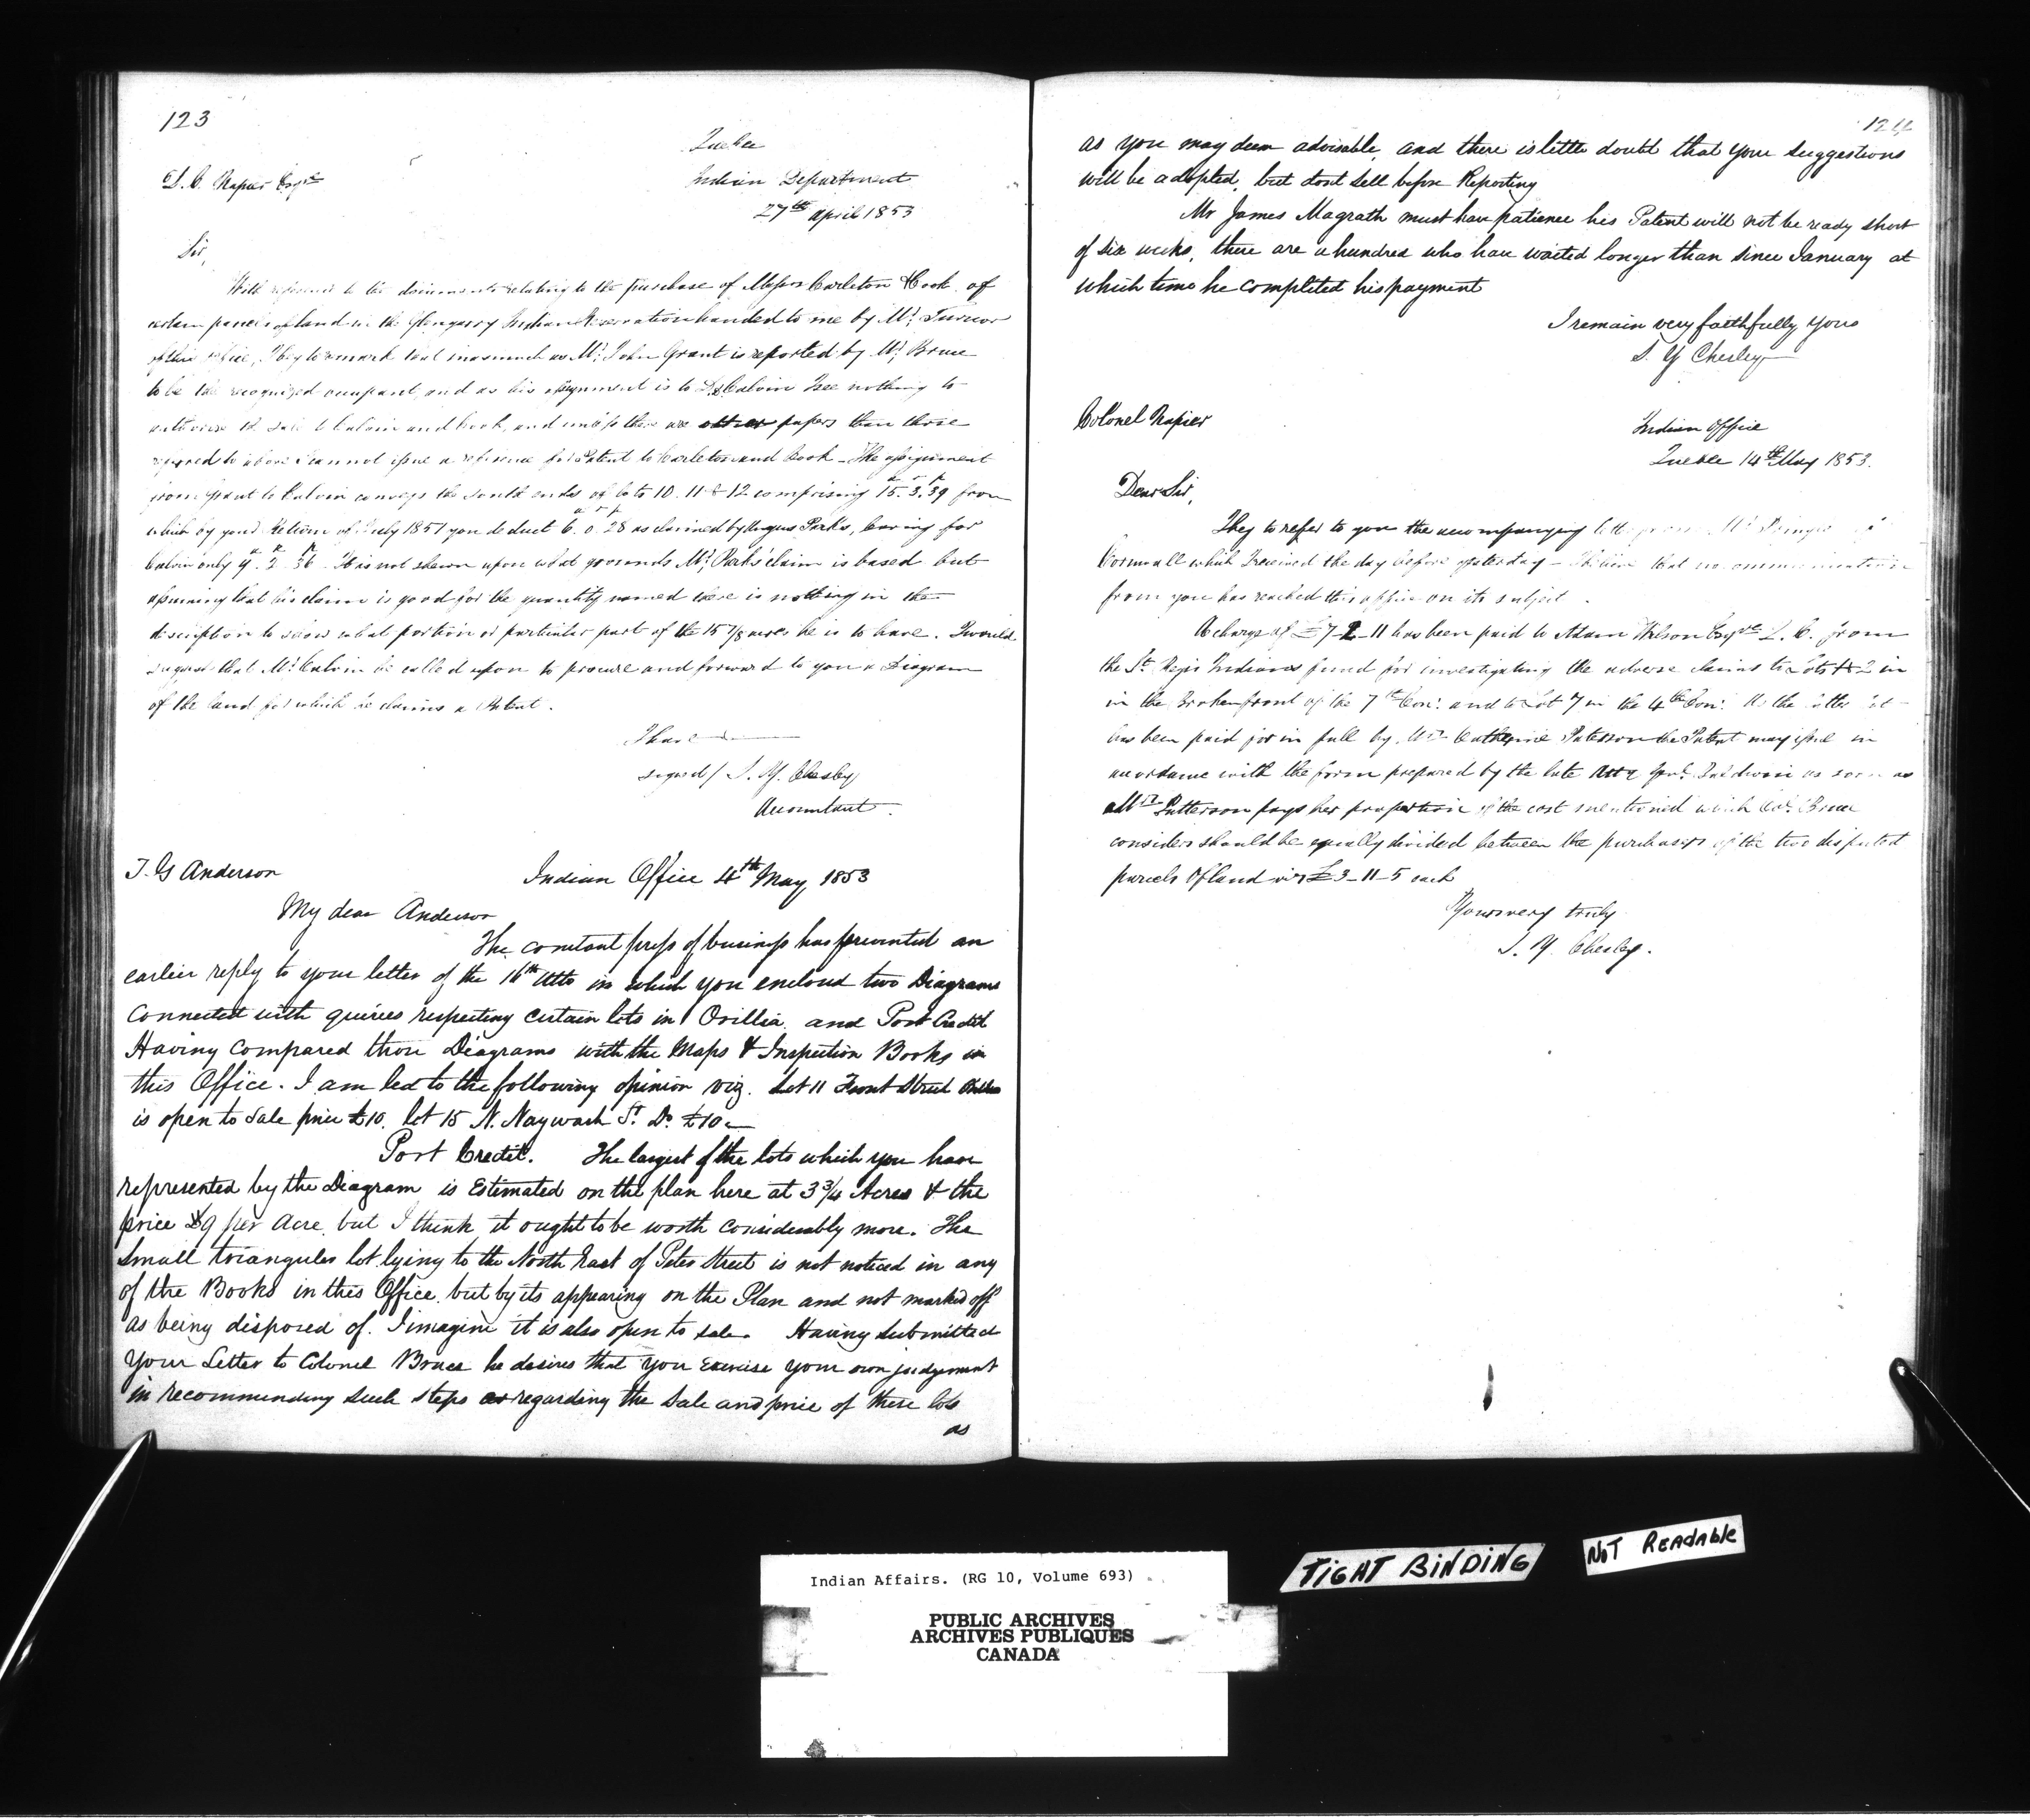 123
Quebec
D. C. Napier Esqre
Indian Department
27th April 1853
Sir,
With reference to the documents relating to the purchase of Messrs Carleton & Cook of
certain parcels of land in the Glengarry Indian Reservation handed to me by Mr. Turnor
of this office, I beg to remark that inasmuch as Mr. John Grant is reported by Mr. Bruce
to be the recognized occupant and as his assignment is to Calvin I see nothing to
authorise the sale to Calvin and Cook, and unless there are other papers than those
referred to above I cannot issue a reference for Patent to Carleton and Cook - The assignment
from Grant to Calvin conveys the south ends of lots 10. 11 & 12 comprising 15. 3. 39 from
which by your Return of July 1851 you deduct 6. 0. 28 as claimed by Angus Parks, leaving for
Calvin only 9. 2. 36. It is not shewn upon what grounds Mr. Park's claim is based but
assuming that his claim is good for the quantity named there is nothing in the
description to show what portion or particular part of the 15 7/8 acres he is to have. I would
suggest that Mr. Calvin be called upon to procure and forward to you a Diagram
of the land for which he claims a Patent.
I have
signed / S. Y. Chesley
Accountant.
T. G Anderson
Indian Office 4th May 1853
My dear Anderson
The constant press of business has prevented an
earlier reply to your letter of the 16th Ulto in which you enclosed two Diagrams
connected with queries respecting certain lots in Orillia and Port Credit
Having compared those Diagrams with the Maps & Inspection Books in
this Office. I am led to the following opinion viz. Lot 11 Front Street Orillia
is open to Sale price £10. lot 15 N. Naywash St. Do. £10
Port Credit. The largest of the lots which you have
represented by the Diagram is Estimated on the plan here at 3 3/4 Acres & the
price £9 per Acre but I think it ought to be worth considerably more. The
small triangular lot lying to the North East of Peter Street is not noticed in any
of the Books in this Office. but by its appearing on the Plan and not marked off
as being disposed of. I imagine it is also open to sale. Having submitted
your Letter to Colonel Bruce he desires that you exercise your own judgement
in recommending such steps as regarding the Sale and price of these lots
as
124
as you may deem advisable, and there is little doubt that your suggestions
will be adopted, but dont sell before Reporting
Mr James Magrath must have patience his Patent will not be ready short
of six weeks, there are a hundred who have waited longer than since January at
which time he completed his payment
I remain very faithfully yours
S. Y Chesley
Colonel Napier
Indian Office
Quebec 14th May 1853.
Dear Sir,
I beg to refer to you the accompanying letter from Mr
Cornwall which I received the day before yesterday - I believe that no communication
from you has reached this office on its subject.
A charge of £7-2-11 has been paid to Adam Wilson Esqre Q. C. from
the St. Regis Indians fund for investigating the adverse claims to Lots 1 & 2 in
in the Broken front of the 7th Con: and to Lot 7 in the 4th Con: As the latter lot
has been paid for in full by Mrs Catherine Paterson the Patent may issue in
accordance with the form prepared by the late Atty Genl. Baldwin as soon as
Mrs Patterson pays her proportion of the cost mentioned which Col. Bruce
considers should be equally divided between the purchasers of the two disputed
parcels of land viz £3-11-5 each
Yours very truly
S. Y. Chesley.
Indian Affairs. (RG 10, Volume 693)
PUBLIC ARCHIVES
ARCHIVES PUBLIQUES
CANADA
TIGHT BINDING
NOT READABLE